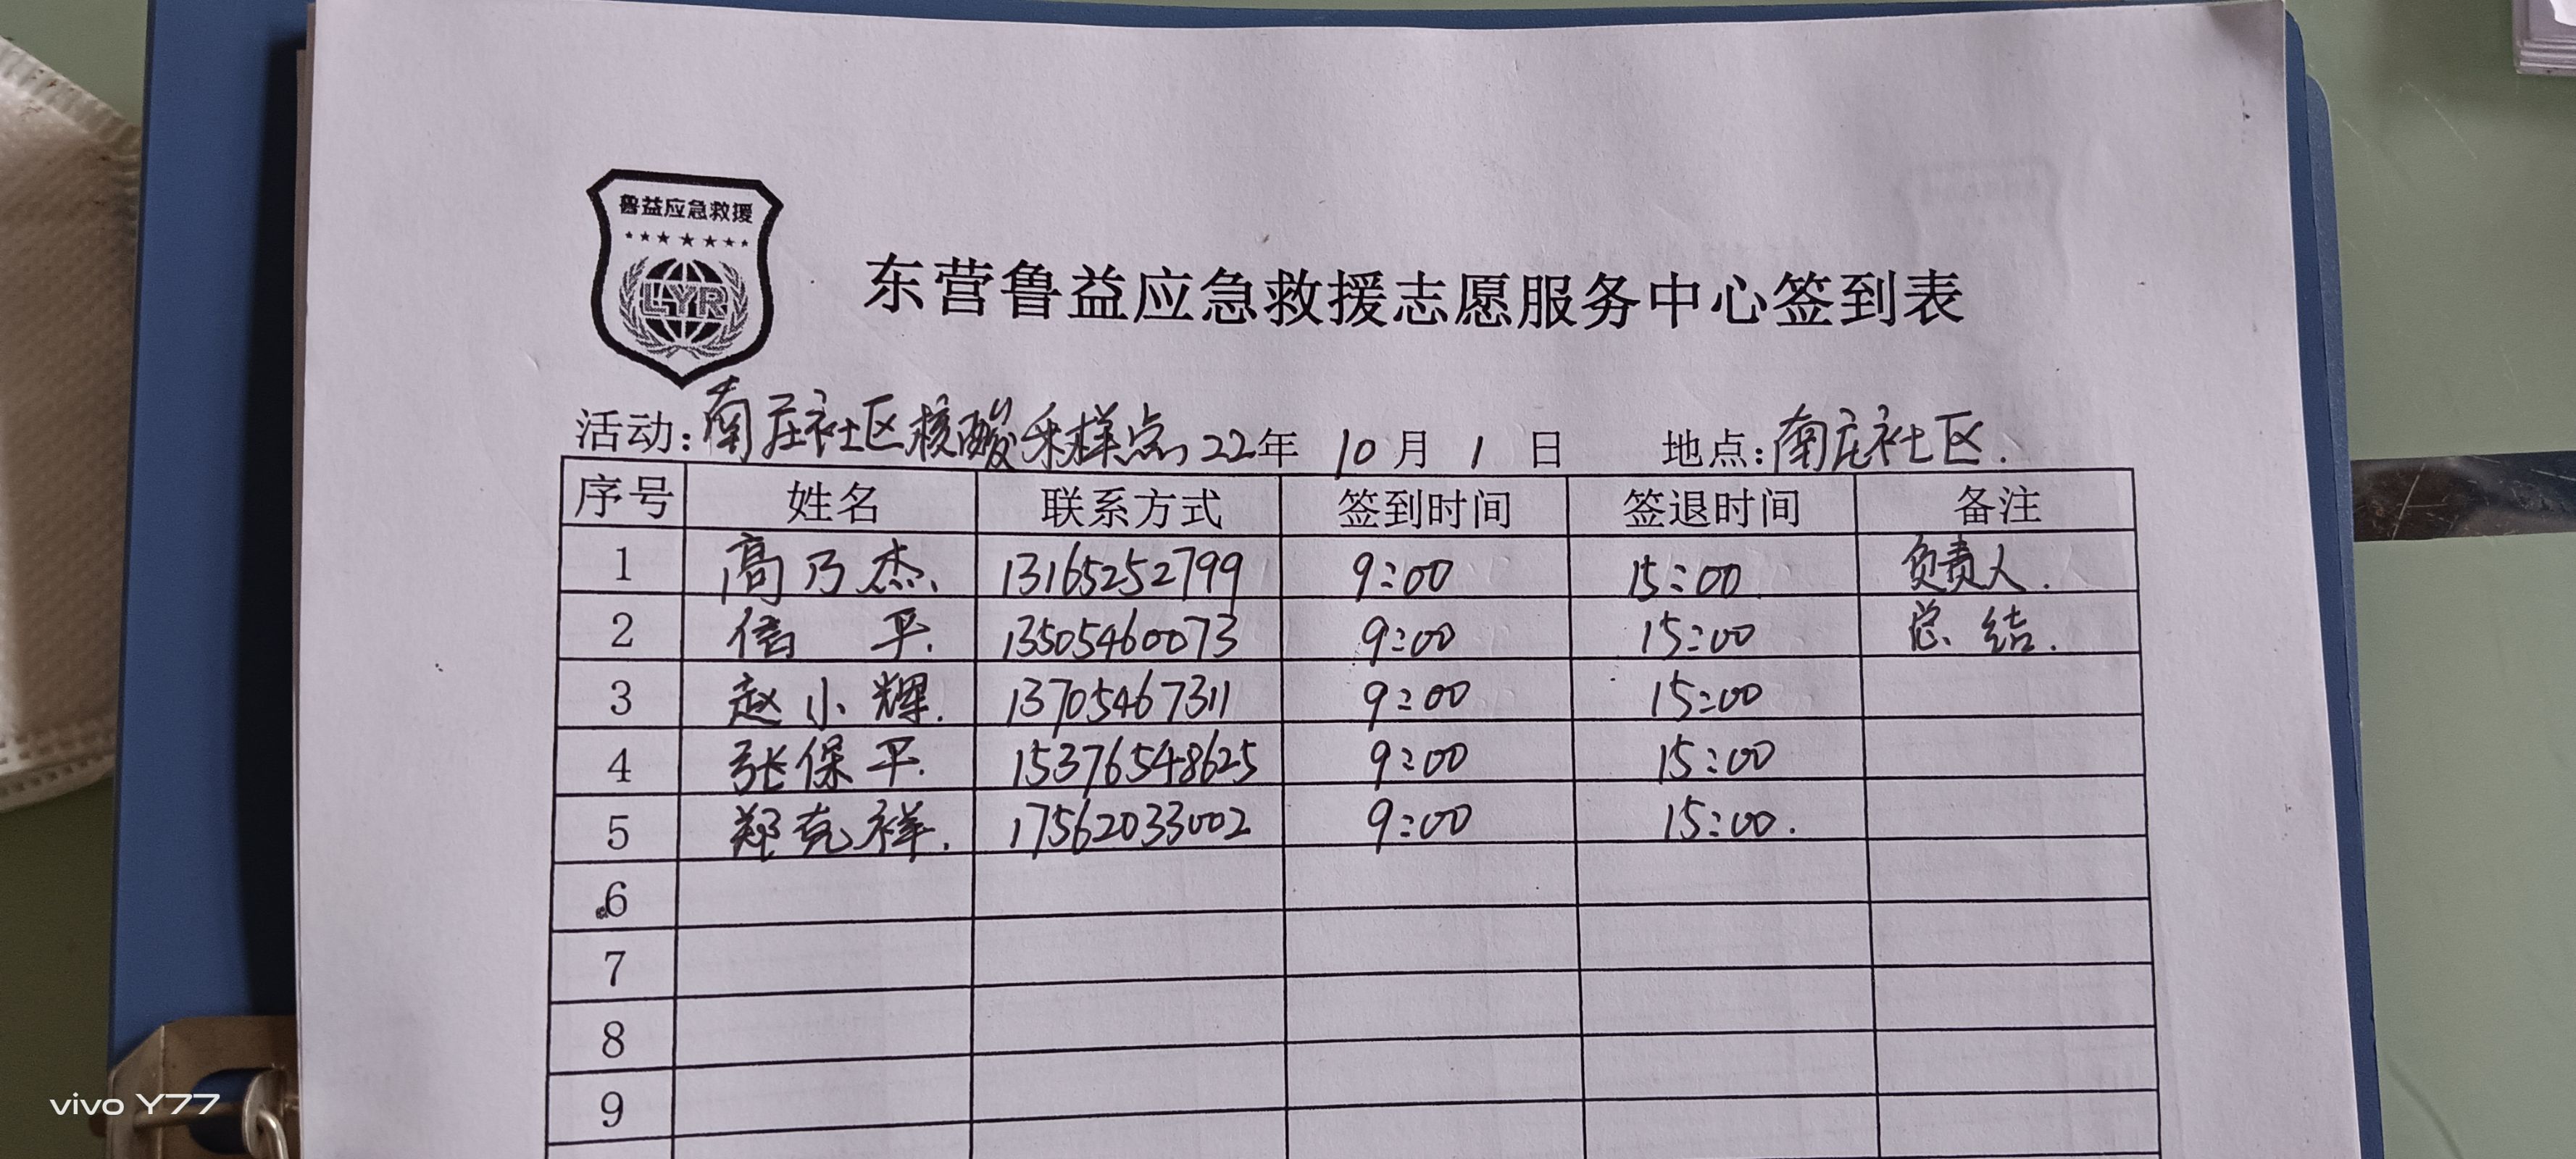 鲁益应急救援
LYR
东营鲁益应急救援志愿服务中心签到表
活动:南庄社区核酸采样点 22年 10月 1日 地点:南庄社区.
序号 姓名 联系方式 签到时间 签退时间 备注
1 高乃杰. 13165252799 9:00 15:00 负责人.
2 信平. 13505460073 9:00 15:00 总结.
3 赵小辉. 13705467311 9:00 15:00
4 张保平. 15376548625 9:00 15:00
5 郑克祥. 17562033002 9:00 15:00.
6
7
8
9
vivo Y77